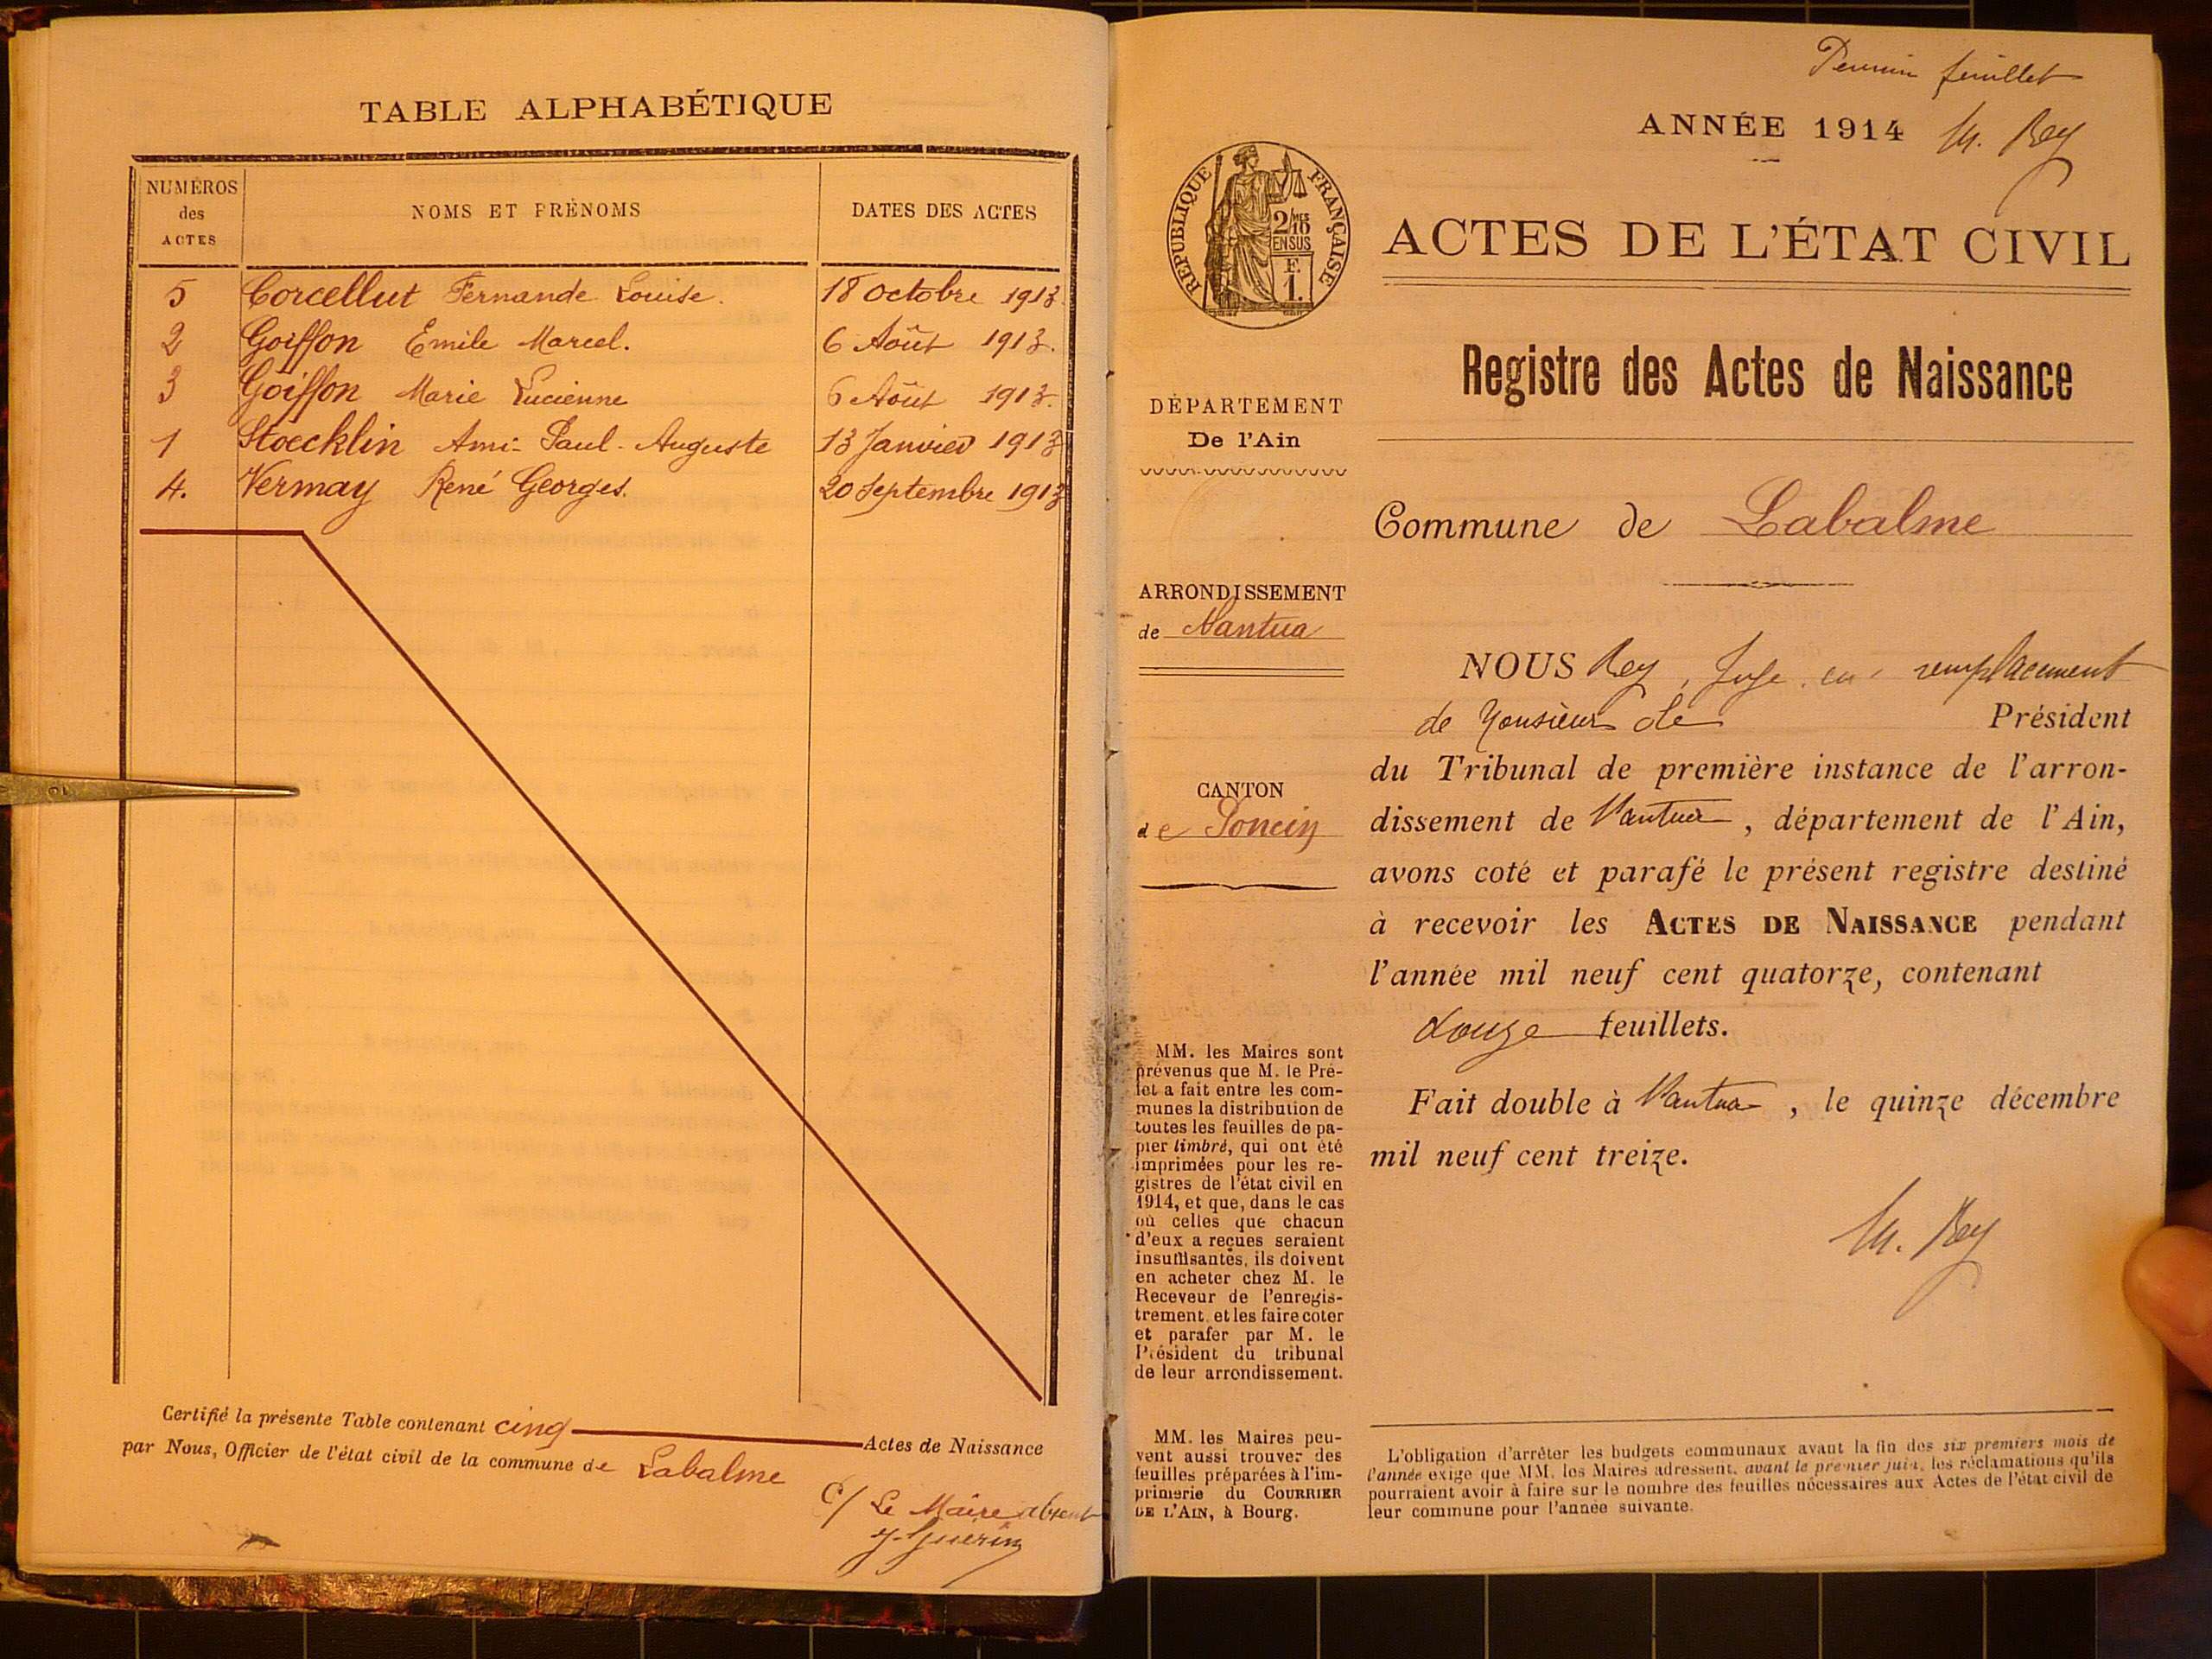 TABLE ALPHABÉTIQUE
NUMÉROS des ACTES
NOMS ET PRÉNOMS
DATES DES ACTES
5 Corcellut Fernande Louise. 18 Octobre 1913.
2 Goiffon Emile Marcel. 6 Août 1913.
3 Goiffon Marie Lucienne 6 Août 1913.
1 Stoecklin Ami-Paul-Auguste 13 Janvier 1913
4. Vermay René Georges. 20 Septembre 1913
Certifié la présente Table contenant cinq Actes de Naissance
par Nous, Officier de l'état civil de la commune de Labalme
C/ Le Maire absent
J. Guérin
Premier feuillet
ANNÉE 1914 M. Rey
RÉPUBLIQUE FRANÇAISE
2/10 MES
EN SUS
F.
1.
ACTES DE L'ÉTAT CIVIL
Registre des Actes de Naissance
DÉPARTEMENT
De l'Ain
Commune de Labalme
ARRONDISSEMENT
de Nantua
CANTON
de Poncin
MM. les Maires sont
prévenus que M. le Pré-
fet a fait entre les com-
munes la distribution de
toutes les feuilles de pa-
pier timbré, qui ont été
imprimées pour les re-
gistres de l'état civil en
1914, et que, dans le cas
où celles que chacun
d'eux a reçues seraient
insuffisantes, ils doivent
en acheter chez M. le
Receveur de l'enregis-
trement, et les faire coter
et parafer par M. le
Président du tribunal
de leur arrondissement.
MM. les Maires peu-
vent aussi trouver des
feuilles préparées à l'im-
primerie du COURRIER
DE L'AIN, à Bourg.
NOUS Rey, Juge en remplacement
de Monsieur le Président
du Tribunal de première instance de l'arron-
dissement de Nantua, département de l'Ain,
avons coté et parafé le présent registre destiné
à recevoir les ACTES DE NAISSANCE pendant
l'année mil neuf cent quatorze, contenant
douze feuillets.
Fait double à Nantua, le quinze décembre
mil neuf cent treize.
M. Rey
L'obligation d'arrêter les budgets communaux avant la fin des six premiers mois de
l'année exige que MM. les Maires adressent, avant le premier juin, les réclamations qu'ils
pourraient avoir à faire sur le nombre des feuilles nécessaires aux Actes de l'état civil de
leur commune pour l'année suivante.